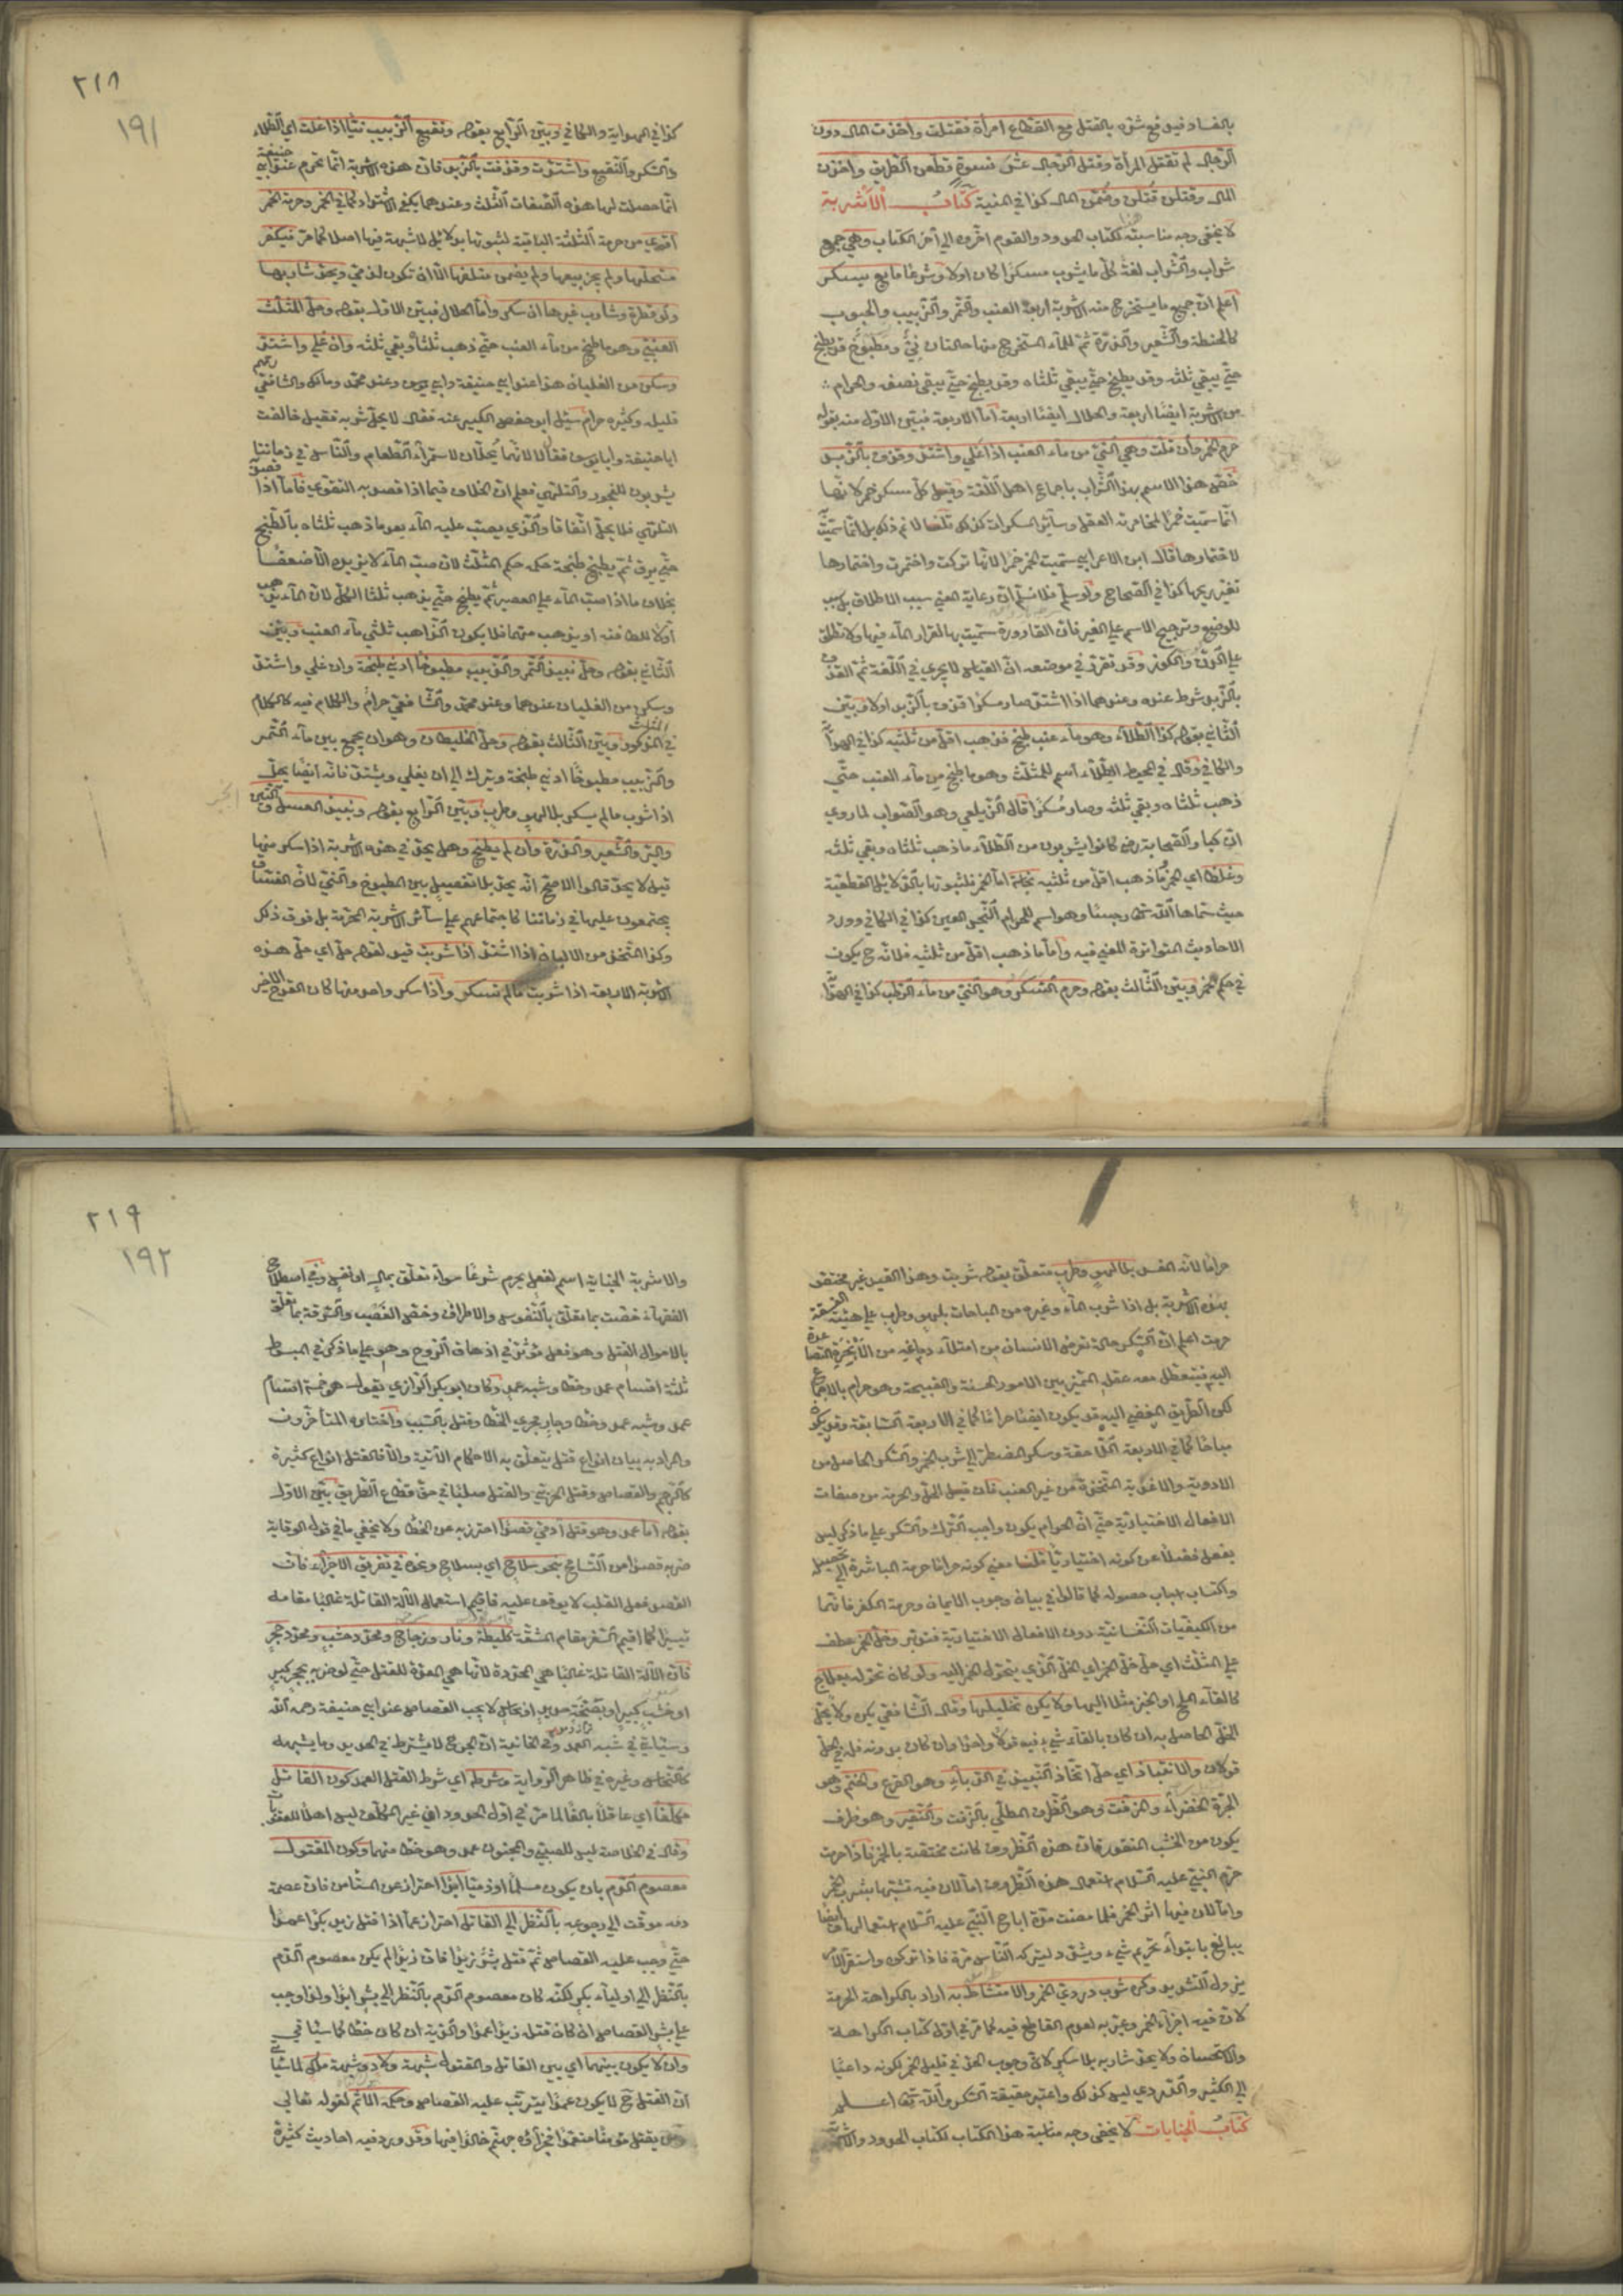 بالفساد فيدفع شره بالقتل مع القطاع امرأة فقتلت واخذت المال دون
الرجال لم تقتل المرأة وقتل الرجال عشر نسوة قطعن الطريق واخذن
المال وقتلن قتلن وضمن المال كذا في المنية كتاب الاشربة
لا يخفى وجه مناسبة هذا لكتاب الحدود والقوم اخروه الى آخر الكتاب وهي جمع
شراب والشراب لغة كل ما يشرب مسكرا كان اولا وشرعا مايع يسكر
اعلم ان جميع ما يستخرج منه الاشربة اربعة العنب والتمر والزبيب والحبوب
كالحنطة والشعير والذرة ثم للماء المستخرج منها حالتان نئ ومطبوخ قد يطبخ
حتى يبقى ثلثه وقد يطبخ حتى يبقى ثلثاه وقد يطبخ حتى يبقى نصفه والحرام
من الاشربة ايضا اربعة والحلال ايضا اربعة اما الاربعة فبين الاول منه بقوله
حرم الخمر وان قلت وهي النئ من ماء العنب اذا غلى واشتد وقذف بالزبد
خص هذا الاسم بهذا الشراب باجماع اهل اللغة وقيل كل مسكر خمر لانها
انما سميت خمرا لمخامرته العقل وسائر المسكرات كذلك قلنا لا نم ذلك بل انما سميت
لاختمارها قال ابن الاعرابي سميت الخمر خمرا لانها تركت واختمرت واختمارها
تغير ريحها كذا في الصحاح ولو سلم فلا نسلم ان رعاية المعنى سبب الاطلاق بل سبب
للوضع وترجيح الاسم على الغير فان القارورة سميت بها لقرار الماء فيها ولا تطلق
على الدن والكوز وقد تقرر في موضعه ان القياس لا يجري في اللغة ثم القذف
بالزبد شرط عنده وعندهما اذا اشتد صار مسكرا قذف بالزبد اولا وبين
الثاني بقوله كذا الطلاء وهو ماء عنب طبخ فذهب اقل من ثلثيه كذا في الهداية
والكافي وقال في المحيط الطلاء اسم للمثلث وهو ما طبخ من ماء العنب حتى
ذهب ثلثاه وبقي ثلثه وصار مسكرا قال الزيلعي وهو الصواب لما روي
ان كبار الصحابة رض كانوا يشربون من الطلاء ما ذهب ثلثاه وبقي ثلثه
وغلظا اي الخمر وما ذهب اقل من ثلثيه نجاسة اما الخمر فلثبوتها بالدلائل القطعية
حيث سماها الله تعالى رجسا وهو اسم للحرام النجس العين كذا في الكافي وورد
الاحاديث المتواترة المعنى فيه واما ما ذهب اقل من ثلثيه فلانه ح يكون
في حكم الخمر وبين الثالث بقوله وحرم السكر وهو النئ من ماء الرطب كذا في الهداية
٢١٨
١٩١
كذا في الهداية والكافي وبين الرابع بقوله ونقيع الزبيب نئا اذا غلت اي الطلاء
والسكر والنقيع واشتدت وقذفت بالزبد فان هذه الاشربة انما تحرم عند ابي حنيفة
اذا حصلت لها هذه الصفات الثلث وعندهما يكفي الاشتداد كما في الخمر وحرمة الخمر
اقوى من حرمة الثلثة الباقية لثبوتها بدلائل لا شبهة فيها اصلا كما مر فيكفر
مستحلها ولم يجز بيعها ولم يضمن متلفها الا ان تكون لذمي ويحد شاربها
ولو قطرة وشارب غيرها ان سكر واما الحلال فبين الاول بقوله وحل المثلث
العنبي وهو ما طبخ من ماء العنب حتى ذهب ثلثاه وبقي ثلثه وان غلى واشتد
وسكن من الغليان هذا عند ابي حنيفة وابي يوسف وعند محمد ومالك والشافعي رحمهم
قليله وكثيره حرام سئل ابو حفص الكبير عنه فقال لا يحل شربه فقيل خالفت
ابا حنيفة وابا يوسف فقال لا لانهما يحلان لاستمراء الطعام والناس في زماننا
يشربون للفجور والتلهي فعلم ان الخلاف فيما اذا قصد به التقوي فاما اذا قصد
التلهي فلا يحل اتفاقا والذي يصب عليه الماء بعد ما ذهب ثلثاه بالطبخ
حتى يرق ثم يطبخ طبخة حكمه حكم المثلث لان صب الماء لا يزيده الا ضعفا
بخلاف ما اذا صب الماء على العصير ثم يطبخ حتى يذهب ثلثا الكل لان الماء يذهب
اولا للطافته او يذهب منهما فلا يكون الذاهب ثلثي ماء العنب وبين
الثاني بقوله وحل نبيذ التمر والزبيب مطبوخا ادنى طبخة وان غلى واشتد
وسكن من الغليان عندهما وعند محمد والشافعي حرام والكلام فيه كالكلام
في المثلث المذكور وبين الثالث بقوله وحل الخليطان وهو ان يجمع بين ماء التمر
والزبيب مطبوخا ادنى طبخة ويترك الى ان يغلي ويشتد فانه ايضا يحل
اذا شرب ما لم يسكر بلا لهو وطرب وبين الرابع بقوله ونبيذ العسل والتين
والبر والشعير والذرة وان لم يطبخ وهل يحد في هذه الاشربة اذا سكر منها
قيل لا يحد قالوا الاصح انه يحد بلا تفصيل بين المطبوخ والنئ لان الفساق
يجتمعون عليها في زماننا كاجتماعهم على سائر الاشربة المحرمة بل فوق ذلك
وكذا المتخذ من الالبان اذا اشتد اذا شربت قيد لقوله حل اي حل هذه
الاشربة الاربعة اذا شربت ما لم تسكر واذا سكر واحد منها كان القدح الاخير
حراما لانه المفسد بلا لهو وطرب متعلق بقوله شربت وهذا القيد غير مختص
بهذه الاشربة بل اذا شرب الماء وغيره من المباحات بلهو وطرب على هيئة الفسقة
حرمت اعلم ان السكر حالة تعرض الانسان من امتلاء دماغه من الابخرة المتصاعدة
اليه فيتعطل معه عقله المميز بين الامور الحسنة والقبيحة وهو حرام بالاجماع
لكن الطريق المفضي اليه قد يكون ايضا حراما كما في الاربعة السابقة وقد يكون
مباحا كما في الاربعة اللاحقة وسكر المضطر الى شرب الخمر والسكر الحاصل من
الادوية والاغذية المتخذة من غير العنب فان قيل الحل والحرمة من صفات
الافعال الاختيارية حتى ان الحرام يكون واجب الترك والسكر على ما ذكر ليس
بفعل فضلا عن كونه اختياريا قلنا معنى كونه حراما حرمة المباشرة الى تحصيله
واكتساب اسباب حصوله كما قالوا في بيان وجوب الايمان وحرمة الكفر فانهما
من الكيفيات النفسانية دون الافعال الاختيارية فتدبر وخل الخمر عطف
على المثلث اي حل خل الخمر اي الخل الذي يتحول الخمر اليه ولو كان تحوله بعلاج
كالقاء الملح او الخبز مثلا اليها ولا يكره تخليلها وقال الشافعي يكره ولا يحل
الخل الحاصل به ان كان بالقاء شيء فيه قولا واحدا وان كان بدونه فله في الحل
قولان والانتباذ اي حل اتخاذ النبيذ في الدباء وهو القرع والحنتم وهو
الجرة الخضراء والمزفت وهو الظرف المطلي بالزفت والنقير وهو ظرف
يكون من الخشب المنقور فان هذه الظروف كانت مختصة بالخمر فاذا حرمت
حرم النبي عليه السلام استعمال هذه الظروف اما لان فيه تشبها بشرب الخمر
واما لان فيها اثر الخمر فلما مضت مدة اباح النبي عليه السلام استعمالها وايضا
يبالغ بابتداء تحريم شيء ويشدد ليتركه الناس مرة فاذا تركوه واستقر الامر
يزول التشديد وكره شرب دردي الخمر والامتشاط به اراد بالكراهة الحرمة
لان فيه اجزاء الخمر وعبر به لعدم القاطع فيه كما مر في اول كتاب الكراهية
والاستحسان ولا يحد شاربه بلا سكر لان وجوب الحد في قليل الخمر لكونه داعيا
الى الكثير والدردي ليس كذلك واعتبر حقيقة السكر والله تعالى اعلم
كتاب الجنايات لا يخفى وجه مناسبة هذا الكتاب لكتاب الحدود والاشربة
٢١٩
١٩٢
والاشربة الجناية اسم لفعل يحرم شرعا سواء تعلق بمال او نفس وفي اصطلاح
الفقهاء خصت بما تعلق بالنفوس والاطراف وخص الغصب والسرقة بما تعلق
بالاموال القتل وهو فعل مؤثر في ازهاق الروح وهو على ما ذكر في المبسوط
ثلثة اقسام عمد وخطأ وشبه عمد وكان ابو بكر الرازي يقول هو خمسة اقسام
عمد وشبه عمد وخطأ وجار مجرى الخطأ وقتل بالتسبيب واختاره المتأخرون
والمراد به بيان انواع قتل يتعلق به الاحكام الآتية والا فالقتل انواع كثيرة
كالرجم والقصاص وقتل الحربي والقتل صلبا في حق قطاع الطريق بين الاول
بقوله اما عمد وهو قتل آدمي قصدا احترز به عن الخطأ ولا يخفى ما في قوله الوقاية
ضربه قصدا من التسامح بنحو سلاح اي بسلاح ونحوه في تفريق الاجزاء فان
القصد فعل القلب لا يوقف عليه فاقيم استعمال الآلة القاتلة غالبا مقامه
تيسيرا كما اقيم السفر مقام المشقة كليطة ونار وزجاج ومحدد خشب ومحدد حجر
فان الآلة القاتلة غالبا هي المحددة لانها هي المعدة للقتل حتى لو ضربه بحجر كبير
او خشب كبير او بصنجة حديد او نحاس لا يجب القصاص عند ابي حنيفة رحمه الله
وسيأتي في شبه العمد وفي الخانية ان الجرح لا يشترط في الحديد وما يشبهه
كالنحاس وغيره في ظاهر الرواية وشرطه اي شرط القتل العمد كون القاتل
مكلفا اي عاقلا بالغا لما مر في اول الحدود ان غير المكلف ليس اهلا للعقوبات
وقال في الخلاصة ليس للصبي والمجنون عمد وهو خطأ منهما وكون المقتول
معصوم الدم بان يكون مسلما او ذميا ابدا احتراز عن المستأمن فان عصمة
دمه موقت الى رجوعه بالنظر الى القاتل احتراز عما اذا قتل زيد بكرا عمدا
حتى وجب عليه القصاص ثم قتل بشر زيدا فان زيدا لم يكن معصوم الدم
بالنظر الى اولياء بكر لكنه كان معصوم الدم بالنظر الى بشر ابدا ولذا وجب
على بشر القصاص ان كان قتل زيدا عمدا والدية ان كان خطأ كما سيأتي
وان لا يكون بينهما اي بين القاتل والمقتول شبهة ولاد وشبهة ملك لما سيأتي
ان القتل ح لا يكون عمدا يترتب عليه القصاص وحكمه الاثم لقوله تعالى
ومن يقتل مؤمنا متعمدا فجزاؤه جهنم خالدا فيها وقد ورد فيه احاديث كثيرة